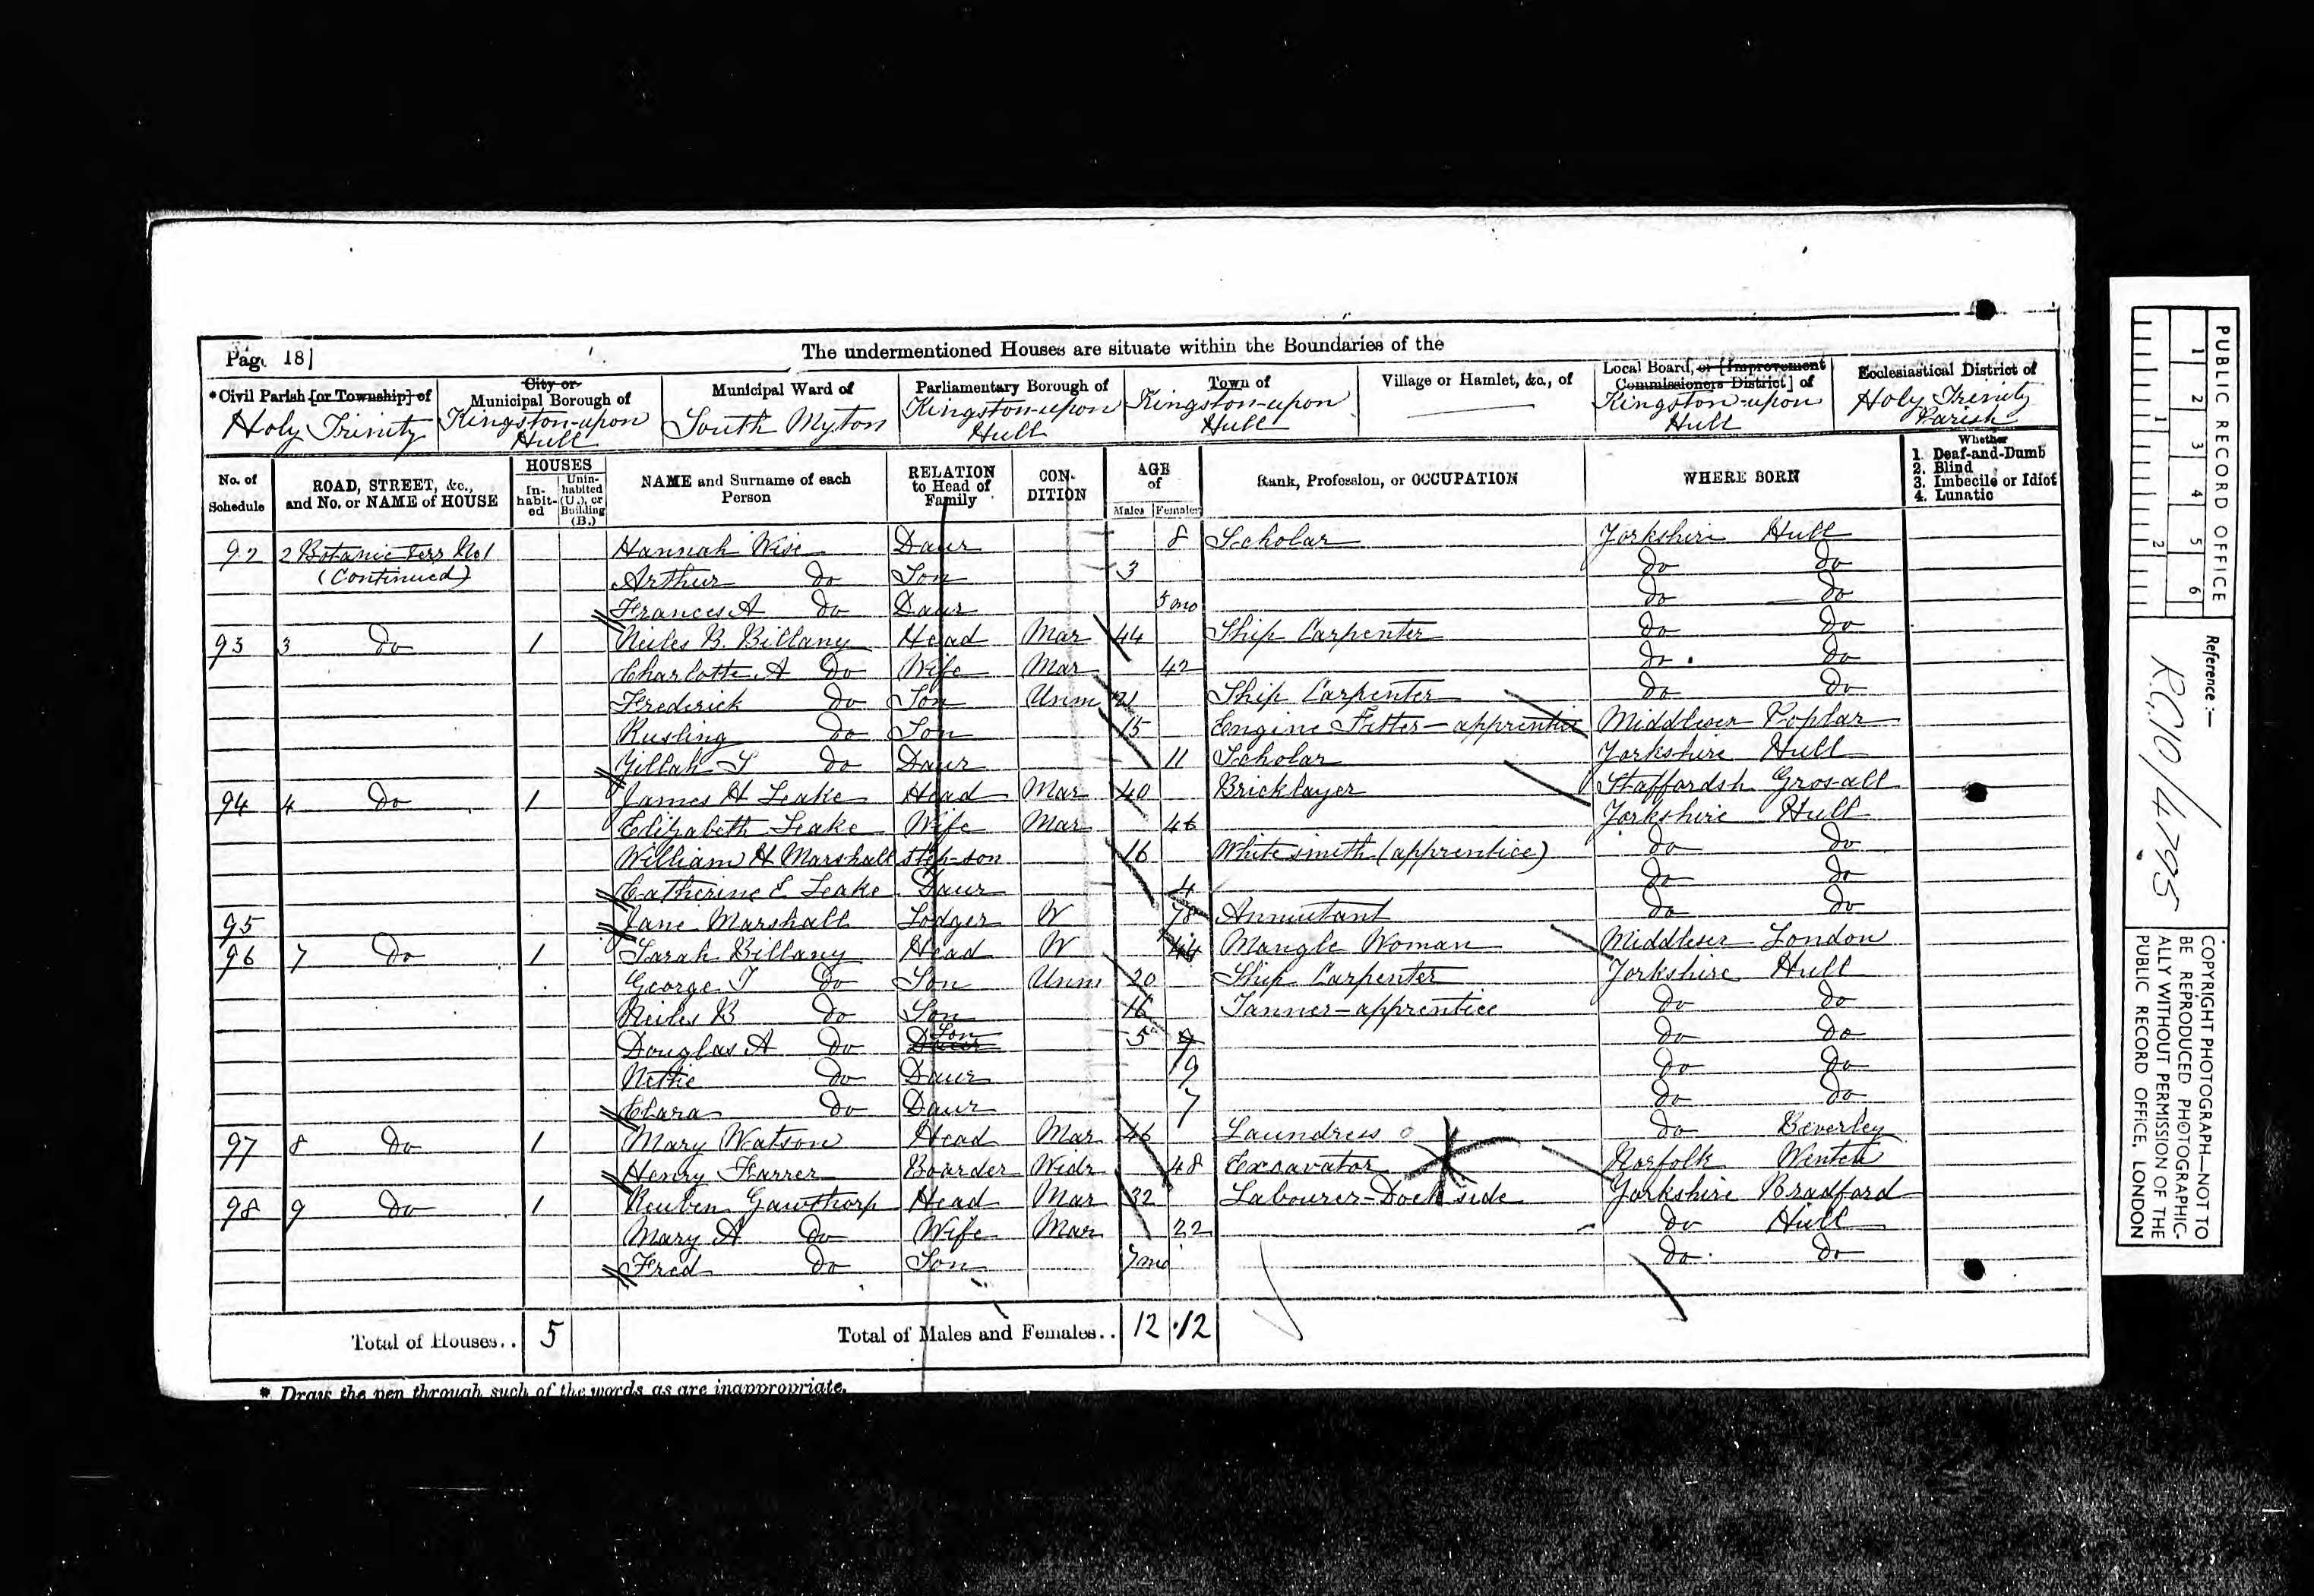 Page 18]
The undermentioned Houses are situate within the Boundaries of the
*Civil Parish [or Township] of
Holy Trinity
City or Municipal Borough of
Kingston-upon Hull
Municipal Ward of
South Myton
Parliamentary Borough of
Kingston-upon Hull
Town of
Kingston-upon Hull
Village or Hamlet, &c., of
Local Board, or [Improvement Commissioners District] of
Kingston-upon Hull
Ecclesiastical District of
Holy Trinity Parish
No. of Schedule
ROAD, STREET, &c., and No. or NAME of HOUSE
HOUSES
In-habit-ed
Unin-habited (U.), or Building (B.)
NAME and Surname of each Person
RELATION to Head of Family
CON-DITION
AGE of
Males Females
Rank, Profession, or OCCUPATION
WHERE BORN
Whether
1. Deaf-and-Dumb
2. Blind
3. Imbecile or Idiot
4. Lunatic
92 2 Botanic Terr No1 Hannah Wise Daur 8 Scholar Yorkshire Hull
(Continued) Arthur Do Son 3 Do Do
Frances A Do Daur 5 mo Do Do
93 3 Do 1 Neiles B. Billany Head Mar 44 Ship Carpenter Do Do
Charlotte A Do Wife Mar 42 Do Do
Frederick Do Son Unm 21 Ship Carpenter Do Do
Rusling Do Son 15 Engine Fitter - apprentice Middlesex Poplar
Gillah S Do Daur 11 Scholar Yorkshire Hull
94 4 Do 1 James H Leake Head Mar 40 Bricklayer Staffordsh Grosall
Elizabeth Leake Wife Mar 46 Yorkshire Hull
William H Marshall Step-son 16 Whitesmith (apprentice) Do Do
Catherine E Leake Daur 4 Do Do
95 Jane Marshall Lodger W 78 Annuitant Do Do
96 7 Do 1 Sarah Billany Head W 44 Mangle Woman Middlesex London
George T Do Son Unm 20 Ship Carpenter Yorkshire Hull
Neiles B Do Son 16 Tanner - apprentice Do Do
Douglas A Do Daur Son 5 Do Do
Nettie Do Daur 9 Do Do
Clara Do Daur 7 Do Do
97 8 Do 1 Mary Watson Head Mar 46 Laundress Do Beverley
Henry Farrer Boarder Widr 48 Excavator Norfolk
98 9 Do 1 Reuben Gawthorp Head Mar 32 Labourer - Dock side Yorkshire Bradford
Mary A Do Wife Mar 22 Do Hull
Fred Do Son 7 mo Do Do
Total of Houses.. 5 Total of Males and Females.. 12 12
* Draw the pen through such of the words as are inappropriate.
PUBLIC RECORD OFFICE
1 2 3 4 5 6
1 2
Reference:—
R.G. 10/4795
COPYRIGHT PHOTOGRAPH—NOT TO
BE REPRODUCED PHOTOGRAPHIC-
ALLY WITHOUT PERMISSION OF THE
PUBLIC RECORD OFFICE, LONDON